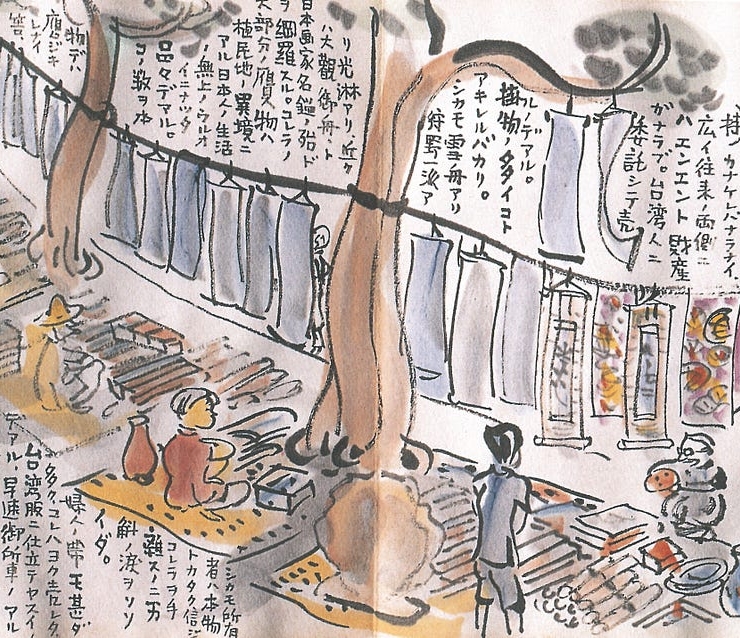 カナケレバナラナイ。
広イ往来ノ両側ニ
ハエンエント財産
ガナラブ。台湾人ニ
委託シテ売
ルノデアル。
掛物ノタダイコト
アキレルバカリ。
シカモ雪舟アリ
狩野一派ア
リ光淋アリ近ク
ハ大観御舟ト
日本画家名鑑殆ド
ヲ網羅スル。コレラノ
大部分ノ贋物ハ
植民地ノ異境ニ
アル日本人ノ生活
ノ無上ノウルオ
イニナッタ
品々デアル。
コノ数ヲ本
物デハ
レナイ
筈
シカモ所有
者ハ本物
トカタク信ジ
コレヲ手
離スノニ万
斛ノ涙ヲソソ
イダ。
婦人ノ帯
甚ダ
多ク、コレハヨク売レタ。
台湾服ニ仕立テヤスイノ
デアル。早速御所車ノアル